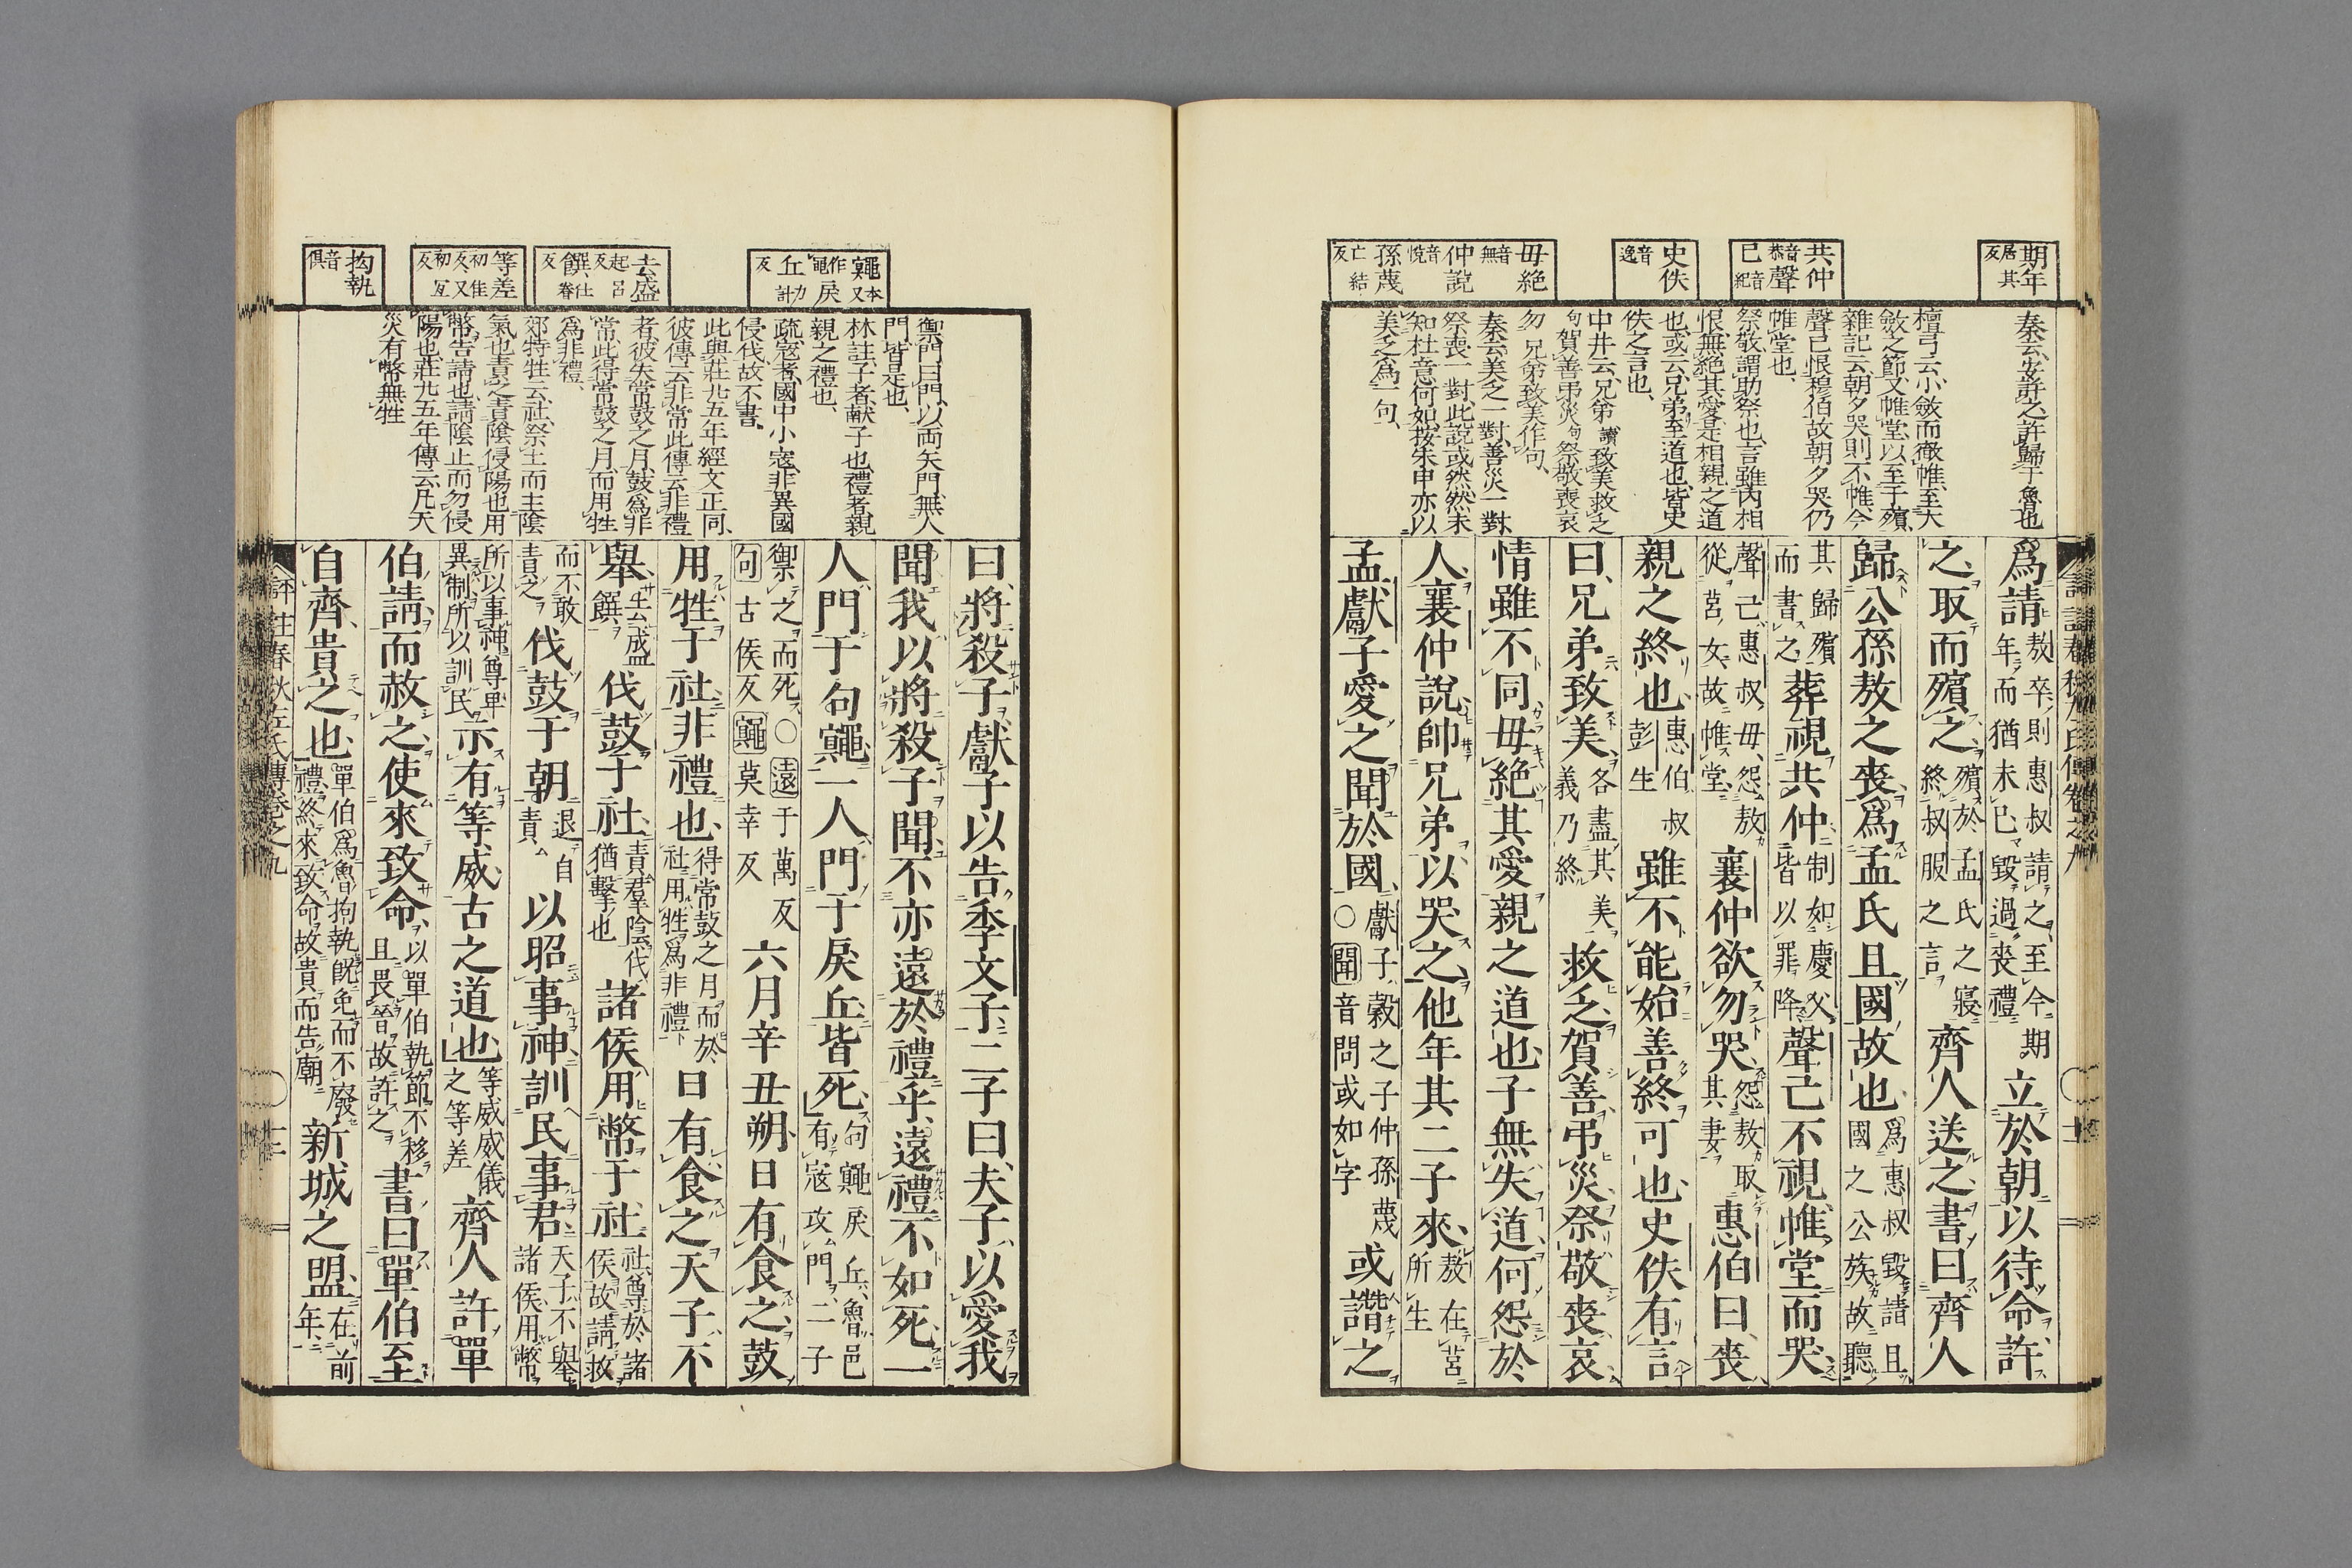 期年居其反
共仲音恭聲己音紀
史佚音逸
毋絶音無仲説音悦孫蔑亡結反
秦云安許之許歸于魯也
檀弓云小斂而徹帷至大
斂之節又帷堂以至于殯
雜記云朝夕哭則不帷今
聲己恨穆伯故朝夕哭仍
帷堂也
祭敬謂助祭也言雖内相
恨無絶其愛是相親之道
也或云兄弟至道也皆史
佚之言也
中井云兄弟讀致美救乏
句賀善弔災句祭敬喪哀
勿兄弟致美作句
秦云美乏一對善災一對
祭喪一對此説或然然未
知杜意何如按朱申亦以
美乏爲一句
爲請敖卒則惠叔請之至今期年而猶未已毀過喪禮立於朝以待命許
之取而殯之殯於孟氏之寢終叔服之言齊人送之書曰齊人
歸公孫敖之喪爲孟氏且國故也爲惠叔毀請且國之公族故聽
其歸殯而書之葬視共仲制如慶父皆以罪降聲己不視帷堂而哭
聲己惠叔毋怨敖從莒女故帷堂襄仲欲勿哭怨敖取其妻惠伯曰喪
親之終也惠伯叔彭生雖不能始善終可也史佚有言
曰兄弟致美各盡其美義乃終救乏賀善弔災祭敬喪哀
情雖不同毋絶其愛親之道也子無失道何怨於
人襄仲説帥兄弟以哭之他年其二子來敖在莒所生
孟獻子愛之聞於國○獻子穀之子仲孫蔑聞音問或如字或譖之
鼆本又作黽戾丘力計反
去盛起呂反饌仕眷反
等差初佳反又初宜反
拘執音俱
禦門曰門以両矢門無人
門皆是也
林註子者獻子也禮者親
親之禮也
疏寇者國中小寇非異國
侵伐故不書
此與莊廿五年經文正同
彼傳云非常此傳云非禮
者彼失常鼓之月鼓爲非
常此得常鼓之月而用牲
爲非禮
郊特牲云社祭土而主陰
氣也責之責陰侵陽也用
幣告請也請陰止而勿侵
陽也莊廿五年傳云凡天
災有幣無牲
曰將殺子獻子以告季文子二子曰夫子以愛我
聞我以將殺子聞不亦遠於禮乎遠禮不如死一
人門于句鼆一人門于戾丘皆死句鼆戾丘魯邑有寇攻門二子
禦之而死○遠于萬反句古侯反鼆莫幸反六月辛丑朔日有食之鼓
用牲于社非禮也得常鼓之月而於社用牲爲非禮日有食之天子不
舉去盛饌伐鼓于社責羣陰伐猶擊也諸侯用幣于社社尊於諸侯故請救
而不敢責之伐鼓于朝退自責以昭事神訓民事君天子不舉諸侯用幣
所以事神尊卑異制所以訓民示有等威古之道也等威威儀之等差齊人許單
伯請而赦之使來致命以單伯執節不移且畏晉故許之書曰單伯至
自齊貴之也單伯爲魯拘執既免而不廢禮終來致命故貴而告廟新城之盟在前年
評註春秋左氏傳卷之九